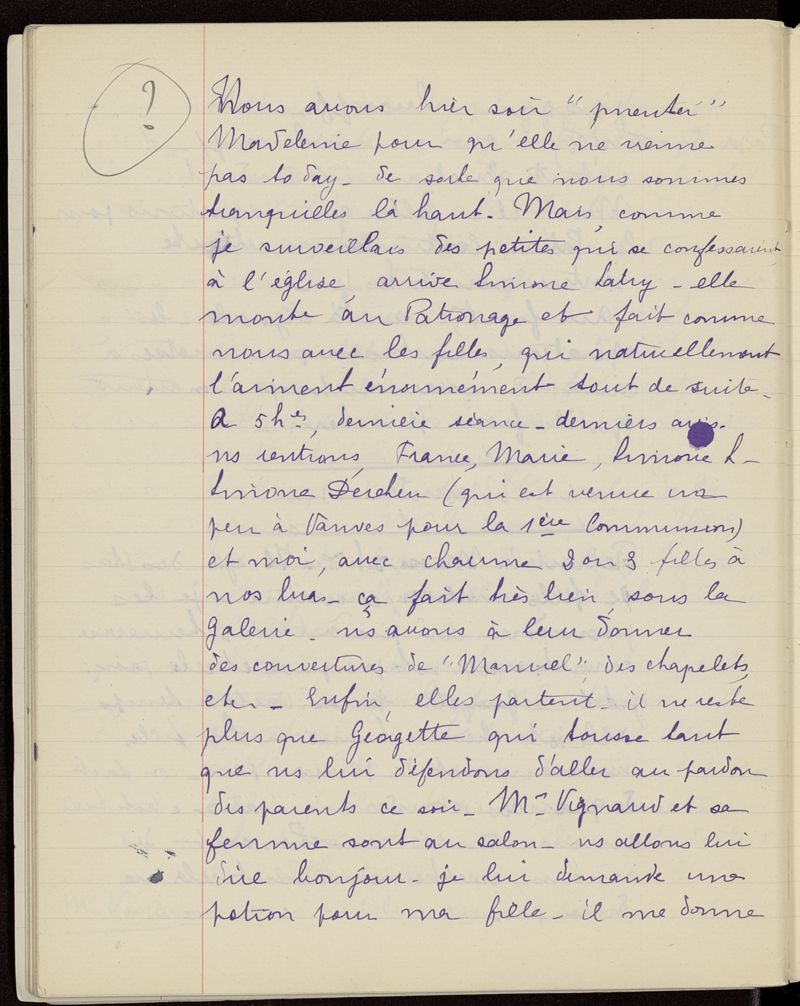 ?
Nous avons hier soir "pneuté"
Madeleine pour qu'elle ne vienne
pas to day - de sorte que nous sommes
tranquilles là haut. Mais, comme
je surveillais des petites qui se confessaient
à l'église arrive Simone Latry - elle
monte au Patronage et fait comme
nous avec les filles, qui naturellement
l'aiment énormément tout de suite -
A 5hes, dernière séance - derniers avis.
ns rentrons, France, Marie, Simone L -
Simone (qui est venue un
peu à Vanves pour la 1ère Communion)
et moi, avec chacune 2 ou 3 filles à
nos bras - ça fait très bien, sous la
Galerie - ns avons à leur donner
des couvertures de "Manuel", des chapelets,
etc. - Enfin, elles partent - il ne reste
plus que Géogette qui tousse tant
que ns lui défendons d'aller au pardon
des parents ce soir - Mr Vignaud et sa
femme sont au salon - ns allons lui
dire bonjour - je lui demande une
potion pour ma fille - il me donne